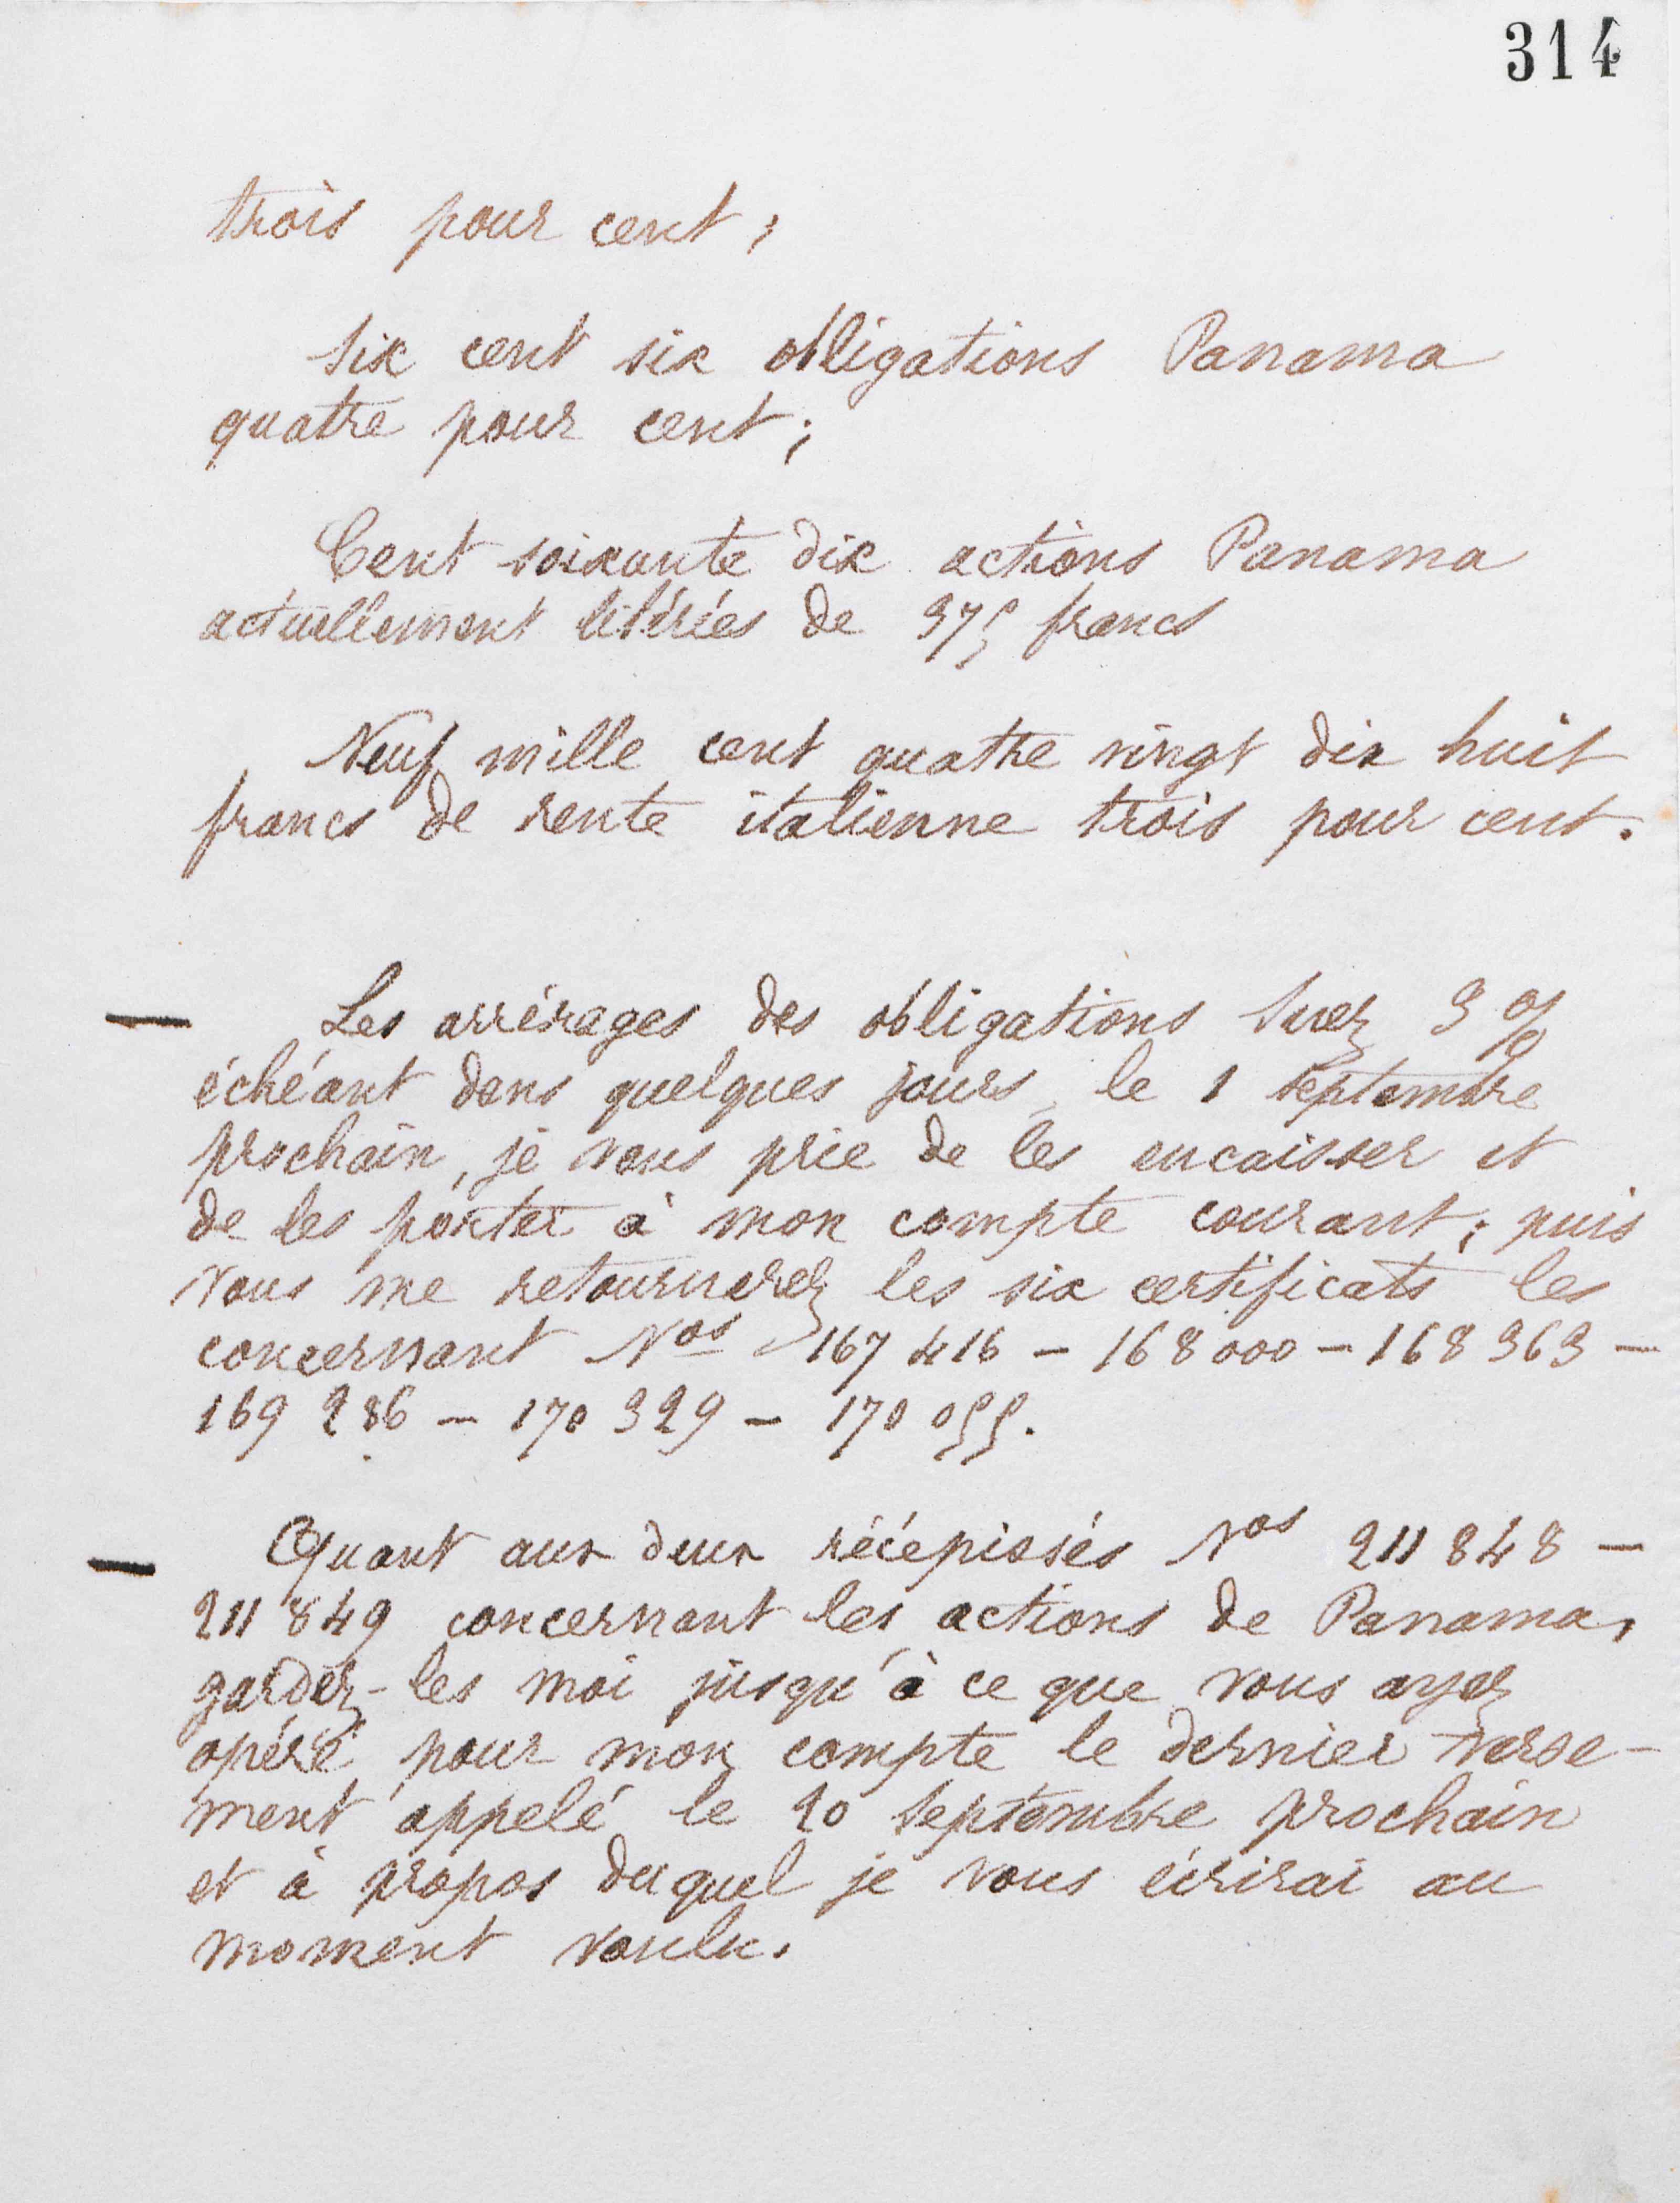 314
trois pour cent ;
Six cent six obligations Panama
quatre pour cent ;
Cent soixante dix actions Panama
actuellement libérées de 375 francs
Neuf mille cent quatre vingt dix huit
francs de rente italienne trois pour cent.
— Les arrérages des obligations Suez 3 %
échéant dans quelques jours, le 1 septembre
prochain, je vous prie de les encaisser et
de les porter à mon compte courant ; puis
vous me retournerez les six certificats les
concernant Nos 167 416 – 168 000 – 168 363 –
169 286 – 170 329 – 170 055.
— Quant aux deux récépissés Nos 211 848 –
211 849 concernant les actions de Panama,
gardez-les moi jusqu'à ce que vous ayez
opéré pour mon compte le dernier verse-
ment appelé le 20 Septembre prochain
et à propos duquel je vous écrirai au
moment voulu.